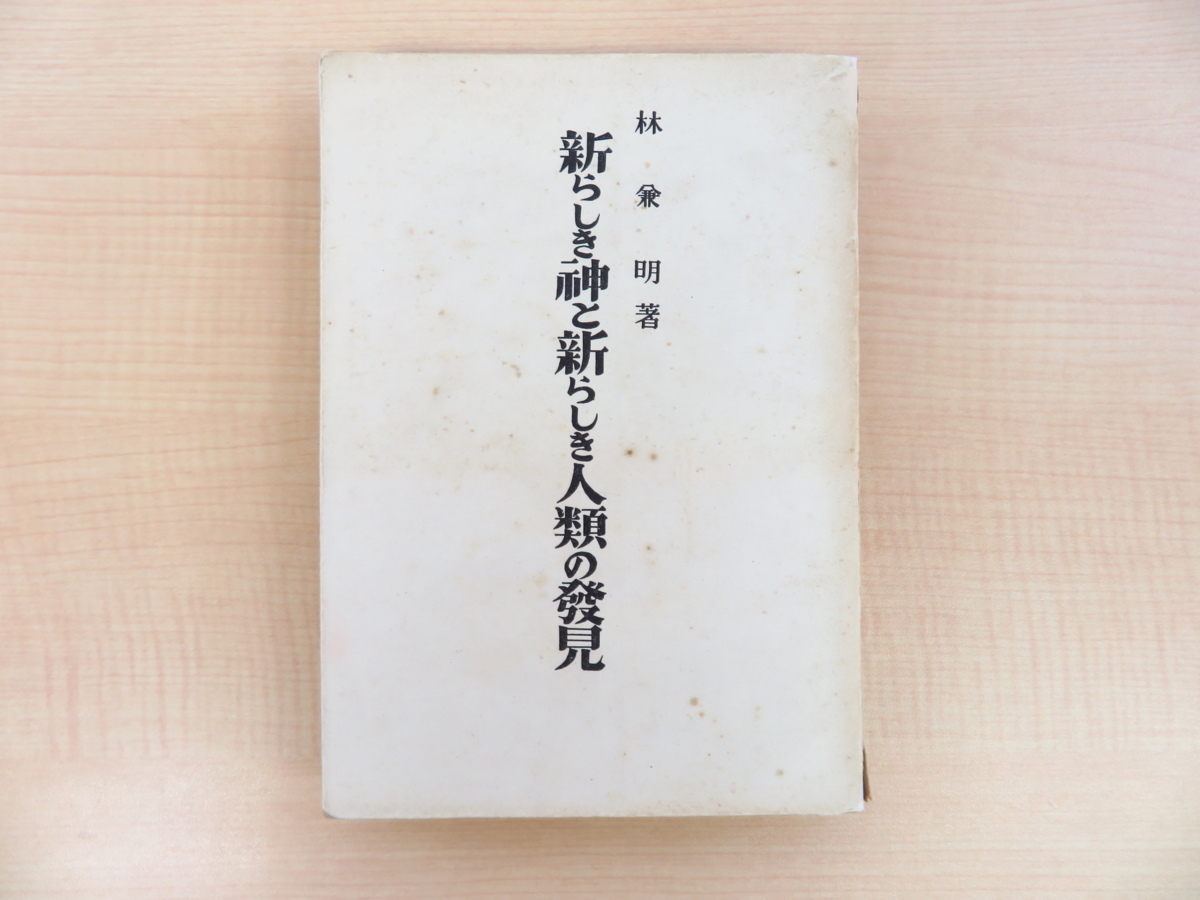 林兼明著
新らしき神と新らしき人類の發見